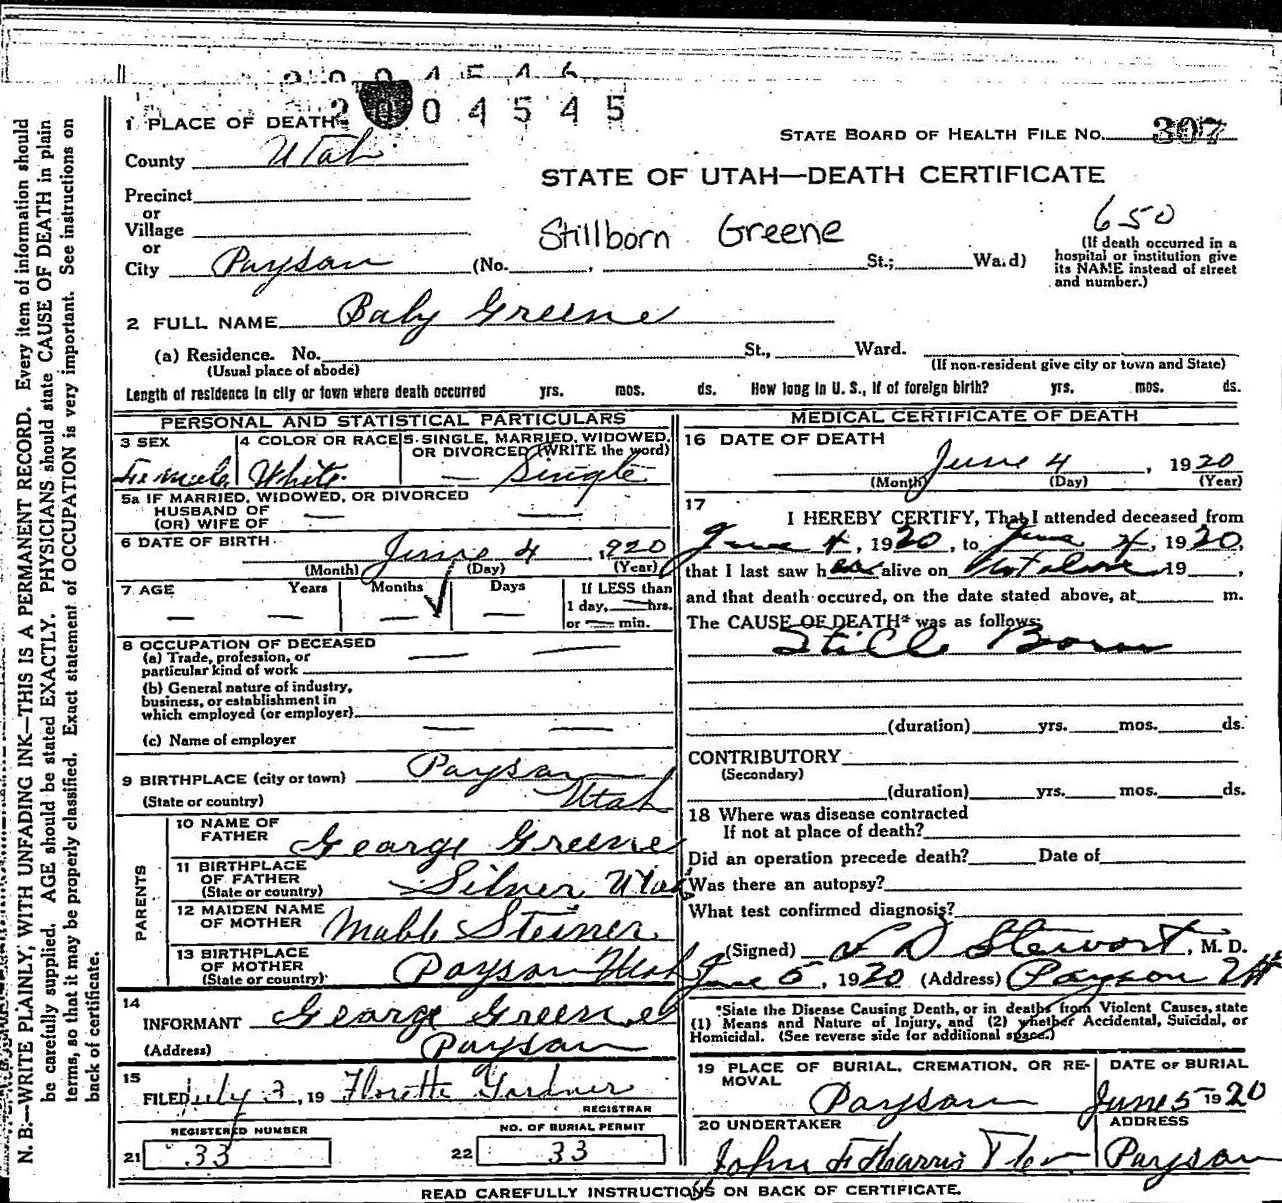 2004546
2004545
1 PLACE OF DEATH
STATE BOARD OF HEALTH FILE No. 307
County Utah
STATE OF UTAH—DEATH CERTIFICATE
Precinct
or
Village
or
City Payson (No. , St.; Ward)
Stillborn Greene
650
(If death occurred in a
hospital or institution give
its NAME instead of street
and number.)
2 FULL NAME Baby Greene
(a) Residence. No. St., Ward.
(Usual place of abode) (If non-resident give city or town and State)
Length of residence in city or town where death occurred yrs. mos. ds. How long in U. S., if of foreign birth? yrs. mos. ds.
PERSONAL AND STATISTICAL PARTICULARS
3 SEX
Female
4 COLOR OR RACE
White
5 SINGLE, MARRIED, WIDOWED,
OR DIVORCED (WRITE the word)
— Single
5a IF MARRIED, WIDOWED, OR DIVORCED
HUSBAND OF — —
(OR) WIFE OF
6 DATE OF BIRTH
June 4, 1920
(Month) (Day) (Year)
7 AGE Years Months Days If LESS than
— — — 1 day, — hrs.
or — min.
8 OCCUPATION OF DECEASED
(a) Trade, profession, or — —
particular kind of work
(b) General nature of industry,
business, or establishment in
which employed (or employer)
— —
(c) Name of employer
9 BIRTHPLACE (city or town) Payson
(State or country) Utah
PARENTS
10 NAME OF
FATHER George Greene
11 BIRTHPLACE
OF FATHER Silver Utah
(State or country)
12 MAIDEN NAME
OF MOTHER Mable Steiner
13 BIRTHPLACE
OF MOTHER Payson Utah
(State or country)
14
INFORMANT George Greene
(Address) Payson
15
FILED July 3, 19 Florette Gardner
REGISTRAR
REGISTERED NUMBER
21 33
NO. OF BURIAL PERMIT
22 33
MEDICAL CERTIFICATE OF DEATH
16 DATE OF DEATH
June 4, 1920
(Month) (Day) (Year)
17
I HEREBY CERTIFY, That I attended deceased from
June 4, 1920, to June 4, 1920,
that I last saw her alive on not alive 19 ,
and that death occured, on the date stated above, at m.
The CAUSE OF DEATH* was as follows:
Stille Born
(duration) yrs. mos. ds.
CONTRIBUTORY
(Secondary)
(duration) yrs. mos. ds.
18 Where was disease contracted
If not at place of death?
Did an operation precede death? Date of
Was there an autopsy?
What test confirmed diagnosis?
(Signed) L D Stewart, M. D.
June 5, 1920 (Address) Payson Ut
*State the Disease Causing Death, or in deaths from Violent Causes, state
(1) Means and Nature of Injury, and (2) whether Accidental, Suicidal, or
Homicidal. (See reverse side for additional space.)
19 PLACE OF BURIAL, CREMATION, OR RE-
MOVAL
Payson
DATE OF BURIAL
June 5 1920
20 UNDERTAKER
John F Harris
ADDRESS
Payson
READ CAREFULLY INSTRUCTIONS ON BACK OF CERTIFICATE.
N. B.—WRITE PLAINLY, WITH UNFADING INK—THIS IS A PERMANENT RECORD. Every item of information should
be carefully supplied. AGE should be stated EXACTLY. PHYSICIANS should state CAUSE OF DEATH in plain
terms, so that it may be properly classified. Exact statement of OCCUPATION is very important. See instructions on
back of certificate.